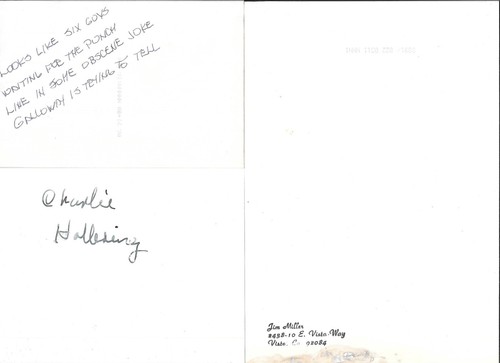 LOOKS LIKE SIX GUYS
WAITING FOR THE PUNCH
LINE IN SOME OBSCENE JOKE
GALLOWAY IS TRYING TO TELL
Charlie
Jim Miller
2438-10 E. Vista Way
Vista, Ca 92084